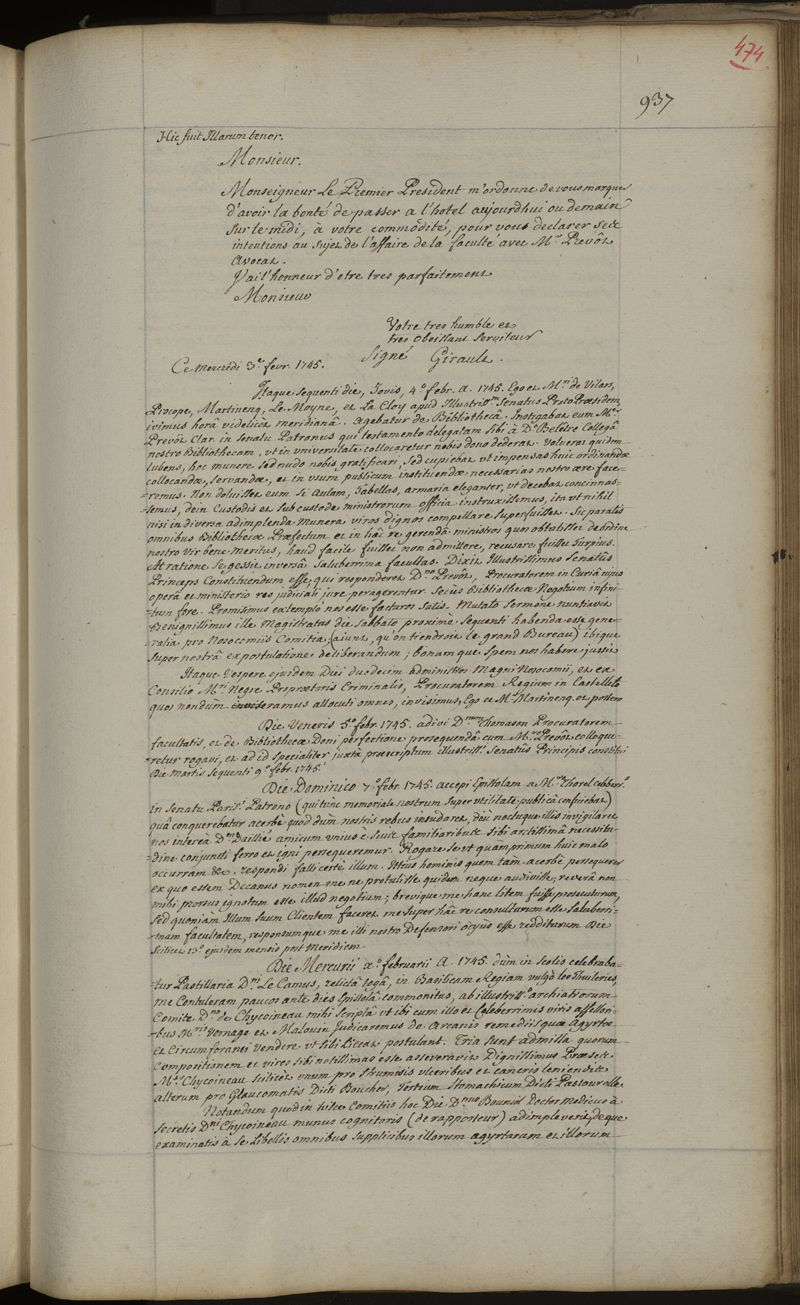 474
937
Hic fuit Illarum tenor.
Monsieur.
Monseigneur Le Premier President m'ordonne de vous marquer
d'avoir la bonté de passer a l'hotel aujourdhui ou demain
sur le midi, à votre commodité, pour vous declarer ses
intentions au sujet de l'affaire de la faculté avec Mr. Prevôt
Avocat.
J'ai l'honneur d'etre tres parfaitement
Monsieur
Votre tres humble et
tres obeissant serviteur
Signé Girault.
Ce mercredi 3e. fevr. 1745.
Itaque sequenti die, Jovis, 4o. febr. a. 1745. Ego et Mri. de Vilars,
Procope, Martinenq, Le Moyne, et La Cloy apud Illustriss.m Senatus ProtoPræsidem
ivimus horâ videlicet meridianâ. Agebatur de Bibliothecâ. Instigabat eum Mter.
Prevôt Clar. in Senatu Patronus qui testamento delegatam sibi à Do. Bellevo Collegâ
nostro Bibliothecam, ut in universitate collocaretur nobis dono dederat. Volverat quidem
lubens, hoc munere sed nudo nobis gratificari, sed cupiebat ut impensas huic ordinandæ
collocandæ, servandæ, et in usum publicum instituendæ necessarias nostro ære face=
=remus. Non doluisset eum si Aulam, Tabellas, armaria eleganter, ut decebat concinnas=
=semus, dein Custodis et subcustode ministrorum officia instruxissimus, ita ut nihil
nisi in diversa adimplenda munera viros dignos compellare superfuisset. Sic paratis
omnibus Bibliothecæ Præfectum et in hâc re gerendâ ministros quos obtulisset de ordine
nostro vir bene meritus, haud facile fuisset non admittere, recusare fuisset turpius.
At ratione se gessit inversâ saluberrima facultas. Dixit Illustrissimus Senatûs
Princeps Constituendum esse, qui responderet Dno. Prevôt, Procuratorem in Curiâ cujus
operâ et ministerio res judiciali jure peragerentur. Secus Bibliothecæ Negotium infini=
=tum fore. Promisimus extemplo nos esse facturos satis. Mutato sermone nuntiavit
Benignissimus ille Magistratus die sabbato proxime sequenti habenda esse gene=
=ralia pro Nosocomiis Comitia, (aiunt, qu'on tiendroit le grand Bureau) ibique
super nostrâ expostulatione deliberandum; bonamque spem nos habere jussit.
Itaque Vespere ejusdem Diei duodecim administros Magni Nosocomii, et ex
Consilio Mri. Negre Proprætoris Criminalis, Procuratorem Regium in Castelleto
quos nondum eramus allocuti omnes, invisimus, Ego et Mr. Martinenq. et
Die Veneris 5o. febr. 1745. adivi Dnum. Thomason Procuratorem
facultatis, et de Bibliothecæ Doni perfectione prosequendâ cum Mro. Prevôt colloque=
=retur rogavi, et ad id specialiter juxtà præscriptum illustriss. Senatûs Principis constitui
Die Martis sequenti 9o. febr. 1745.
Die Dominico 7o. febr. 1745. accepi Epistolam a Mro. Thorel celeberro.
in Senatu Paris. Patrono (qui tunc memoriale nostrum super utilitate publicâ conficiebat)
quâ conquerebatur acerbè quod dum nostris rebus insudaret, diu noctuque illis invigilaret
nos interea Dnum Dailliè amicum unius è suis familiaribus sibi arctissimâ necessitu=
=dine conjuncti ferro et igni persequeremur. Rogare se ut quamprimum huic malo
occurram &c. respondi falli certè illum. Istius hominis quem tam acerbè persequerer
ex quo essem Decanus nomen me ne protulisse quidem neque audivisse, reverâ non
mihi prorsus ignotum esse illud negotium; brevique me hanc litem fuisse prosecuturum,
sed quoniam Illum suum Clientem faceret me super hâc re consulturum esse saluberri=
=mam facultatem, responsumque me illi nostro Defensori ocyus esse redditurum. Die
scilicet 13o. ejusdem mensis post Meridiem.
Die Mercurii xo. februarii A. 1745. dùm in scolis celebraba=
=tur Pastillaria Dni. Le Camus, relictâ togâ, in Basilicam Regiam vulgò les Thuileries,
me Contuleram paucos ante dies Epistolâ commonitus, ab illustriss.o archiatrorum
Comite Dno. de Chycoineau mihi scriptâ ut ibi cum illo et Celeberrimis viris assessori=
=bus Mris Vernage et Malouin judicaremus de Arcanis remediis quæ Agyrtæ
et Circumforanei vendere ut sibi liceat postulant. Tria sunt admissa quorum
compositionem et vires sibi notissimas esse asseveravit Dignissimus Præses
Mr. Chycoineau scilicet unum pro strumosis ulceribus et cancris leniendis
alterum pro Glaucomatis Dicti Boucher, Tertium Stomachicum Dicti Pastourelle.
Notandum quod in hisce Comitiis hoc Die Dnus. Bouvid Doctor Medicus à
secretis Dni. Chycoineau munus cognitoris (de rapporteur) adimpleverit, deque
examinatis à se Libellis omnibus supplicibus illorum agyrtarum et illorum